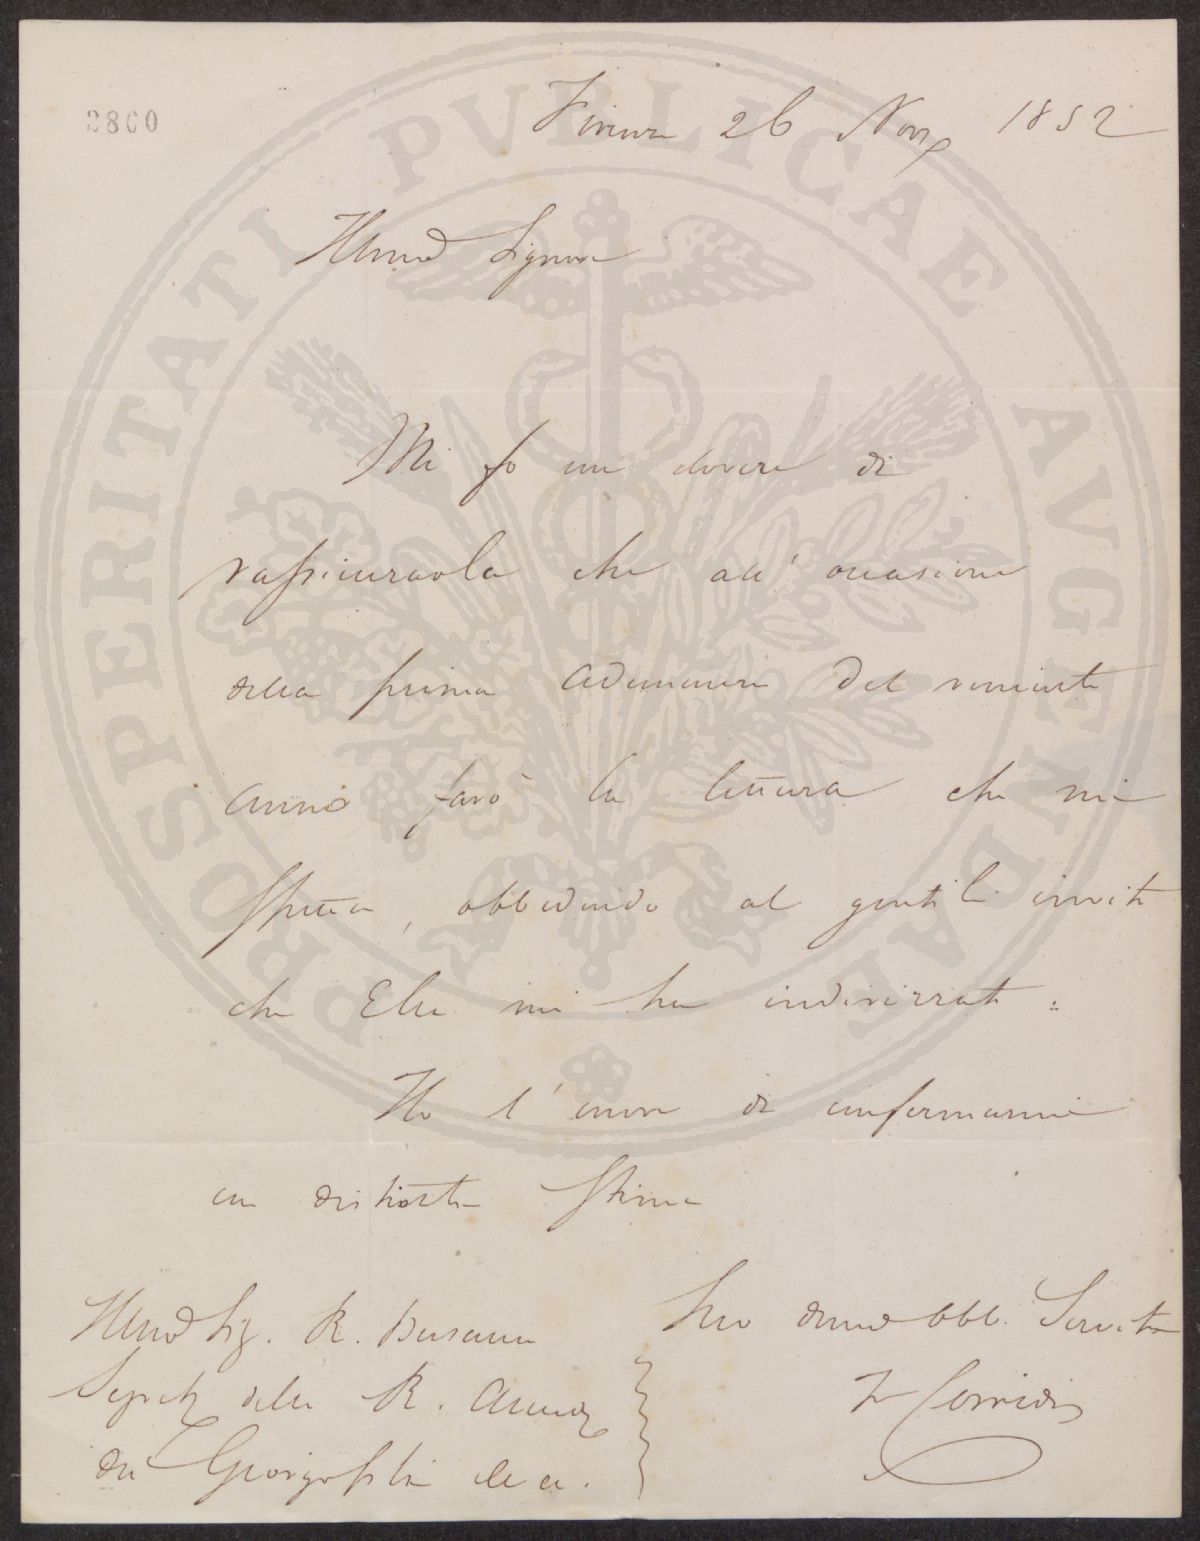 3800
Firenze 26 Nov. 1852
Illmo Signore
Mi fo un dovere di
rassicurarla che all' occasione
della prima adunanza del veniente
anno farò la lettura che mi
spetta, obbedendo al gentile invito
che Ella mi ha indirizzato.
Ho l' onore di confermarmi
con distinta stima
Suo devmo obbl. Servitore
F Corridi
Illmo Sig. R.
Segret della R. Accad
dei Georgofili
PROSPERITATI PVBLICAE AVGENDAE